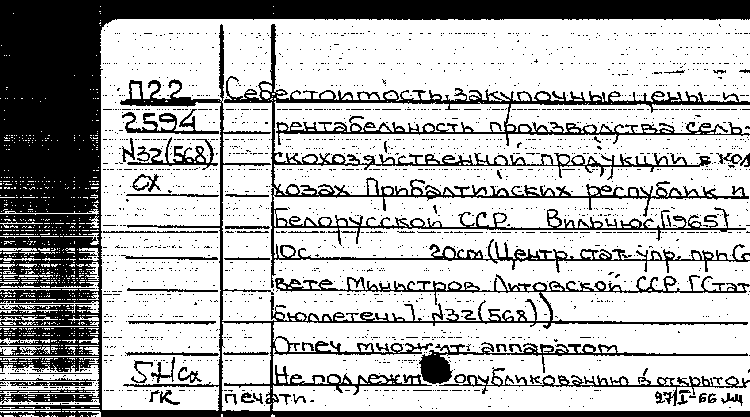 П22 Себестоимость, закупочные цены и
2594 рентабельность производства сель-
N32(568) скохозяйственной продукции в кол
сх. хозах Прибалтийских республик и
Белорусской ССР. Вильнюс, [1965]
10с. 20cm (Центр. стат. упр. при Со
вете Министров Литовской ССР. [Стат
бюллетень]. N32(568)).
Отпеч. множит. аппаратом
5Н Не подлежит опубликованию в открытой
гк печати. 27/I-66